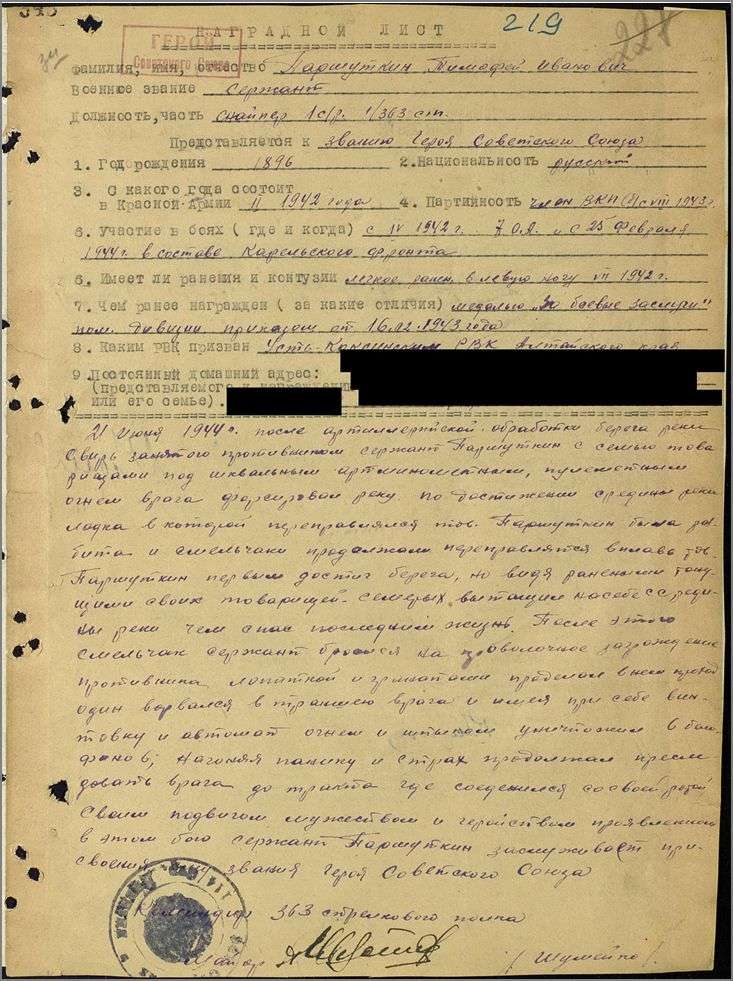 219
221
НАГРАДНОЙ ЛИСТ
ГЕРОЙ
Советского Союза
Фамилия, имя, отчество Паршуткин Тимофей Иванович
Военное звание Сержант
Должность, часть снайпер 1 с/р. 1/363 сп.
Представляется к званию Героя Советского Союза
1. Год рождения 1896 2. Национальность русский
3. С какого года состоит
в Красной Армии II 1942 года 4. Партийность член ВКП(б) с VIII 1943г.
6. Участие в боях ( где и когда) с IV 1942г. 7 О.А. и с 25 Февраля
1944г. в составе Карельского фронта
6. Имеет ли ранения и контузии легкое ранен. в левую ногу VII 1942г.
7. Чем ранее награжден ( за какие отличия) медалью "За боевые заслуги"
пом. Дивизии приказом от 16.12.1943 года
8. Каким РВК призван Усть-Коксинским РВК Алтайского края
9. Постоянный домашний адрес:
(представляемого к награждению
или его семье).
21 июня 1944г. после артиллерийской обработки берега реки
Свирь занятого противником сержант Паршуткин с семью това
рищами под шквальным артминометным, пулеметным
огнем врага форсировал реку. По достижении средины реки
лодка в которой переправлялся тов. Паршуткин была раз
бита и смельчаки продолжали переправлятся вплавь тов.
Паршуткин первым достиг берега, но видя ранеными тону
щими своих товарищей - семерых вытащил на себе с среди
ны реки чем спас последним жизнь. После этого
смельчак сержант бросился на проволочное заграждение
противника лопаткой и гранатами проделал в нем проход
один ворвался в траншею врага и имея при себе вин-
товку и автомат огнем и штыком уничтожил 6 бел
финов; нагоняя панику и страх продолжал пресле
довать врага до тракта где соеденился со своей ротой
Своим подвигом мужеством и геройством проявленном
в этом бою сержант Паршуткин заслуживает при-
своения ему звания Героя Советского Союза
Командир 363 стрелкового полка
Майор
/ Шумейко /.